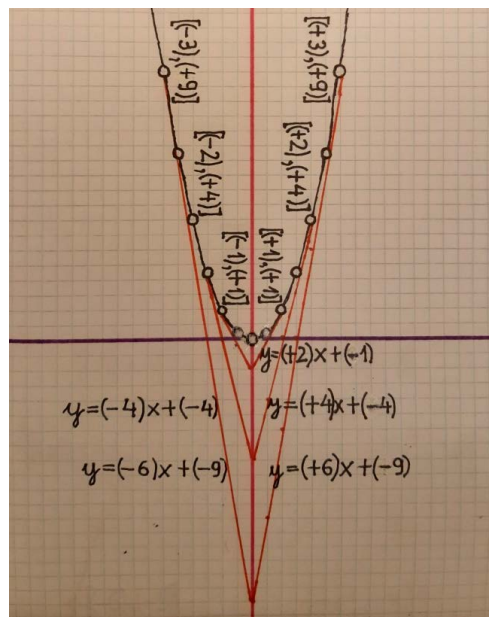 [(-3),(+9)]
[(+3),(+9)]
[(-2),(+4)]
[(+2),(+4)]
[(-1),(+1)]
[(+1),(+1)]
y=(+2)x+(-1)
y=(-4)x+(-4)
y=(+4)x+(-4)
y=(-6)x+(-9)
y=(+6)x+(-9)